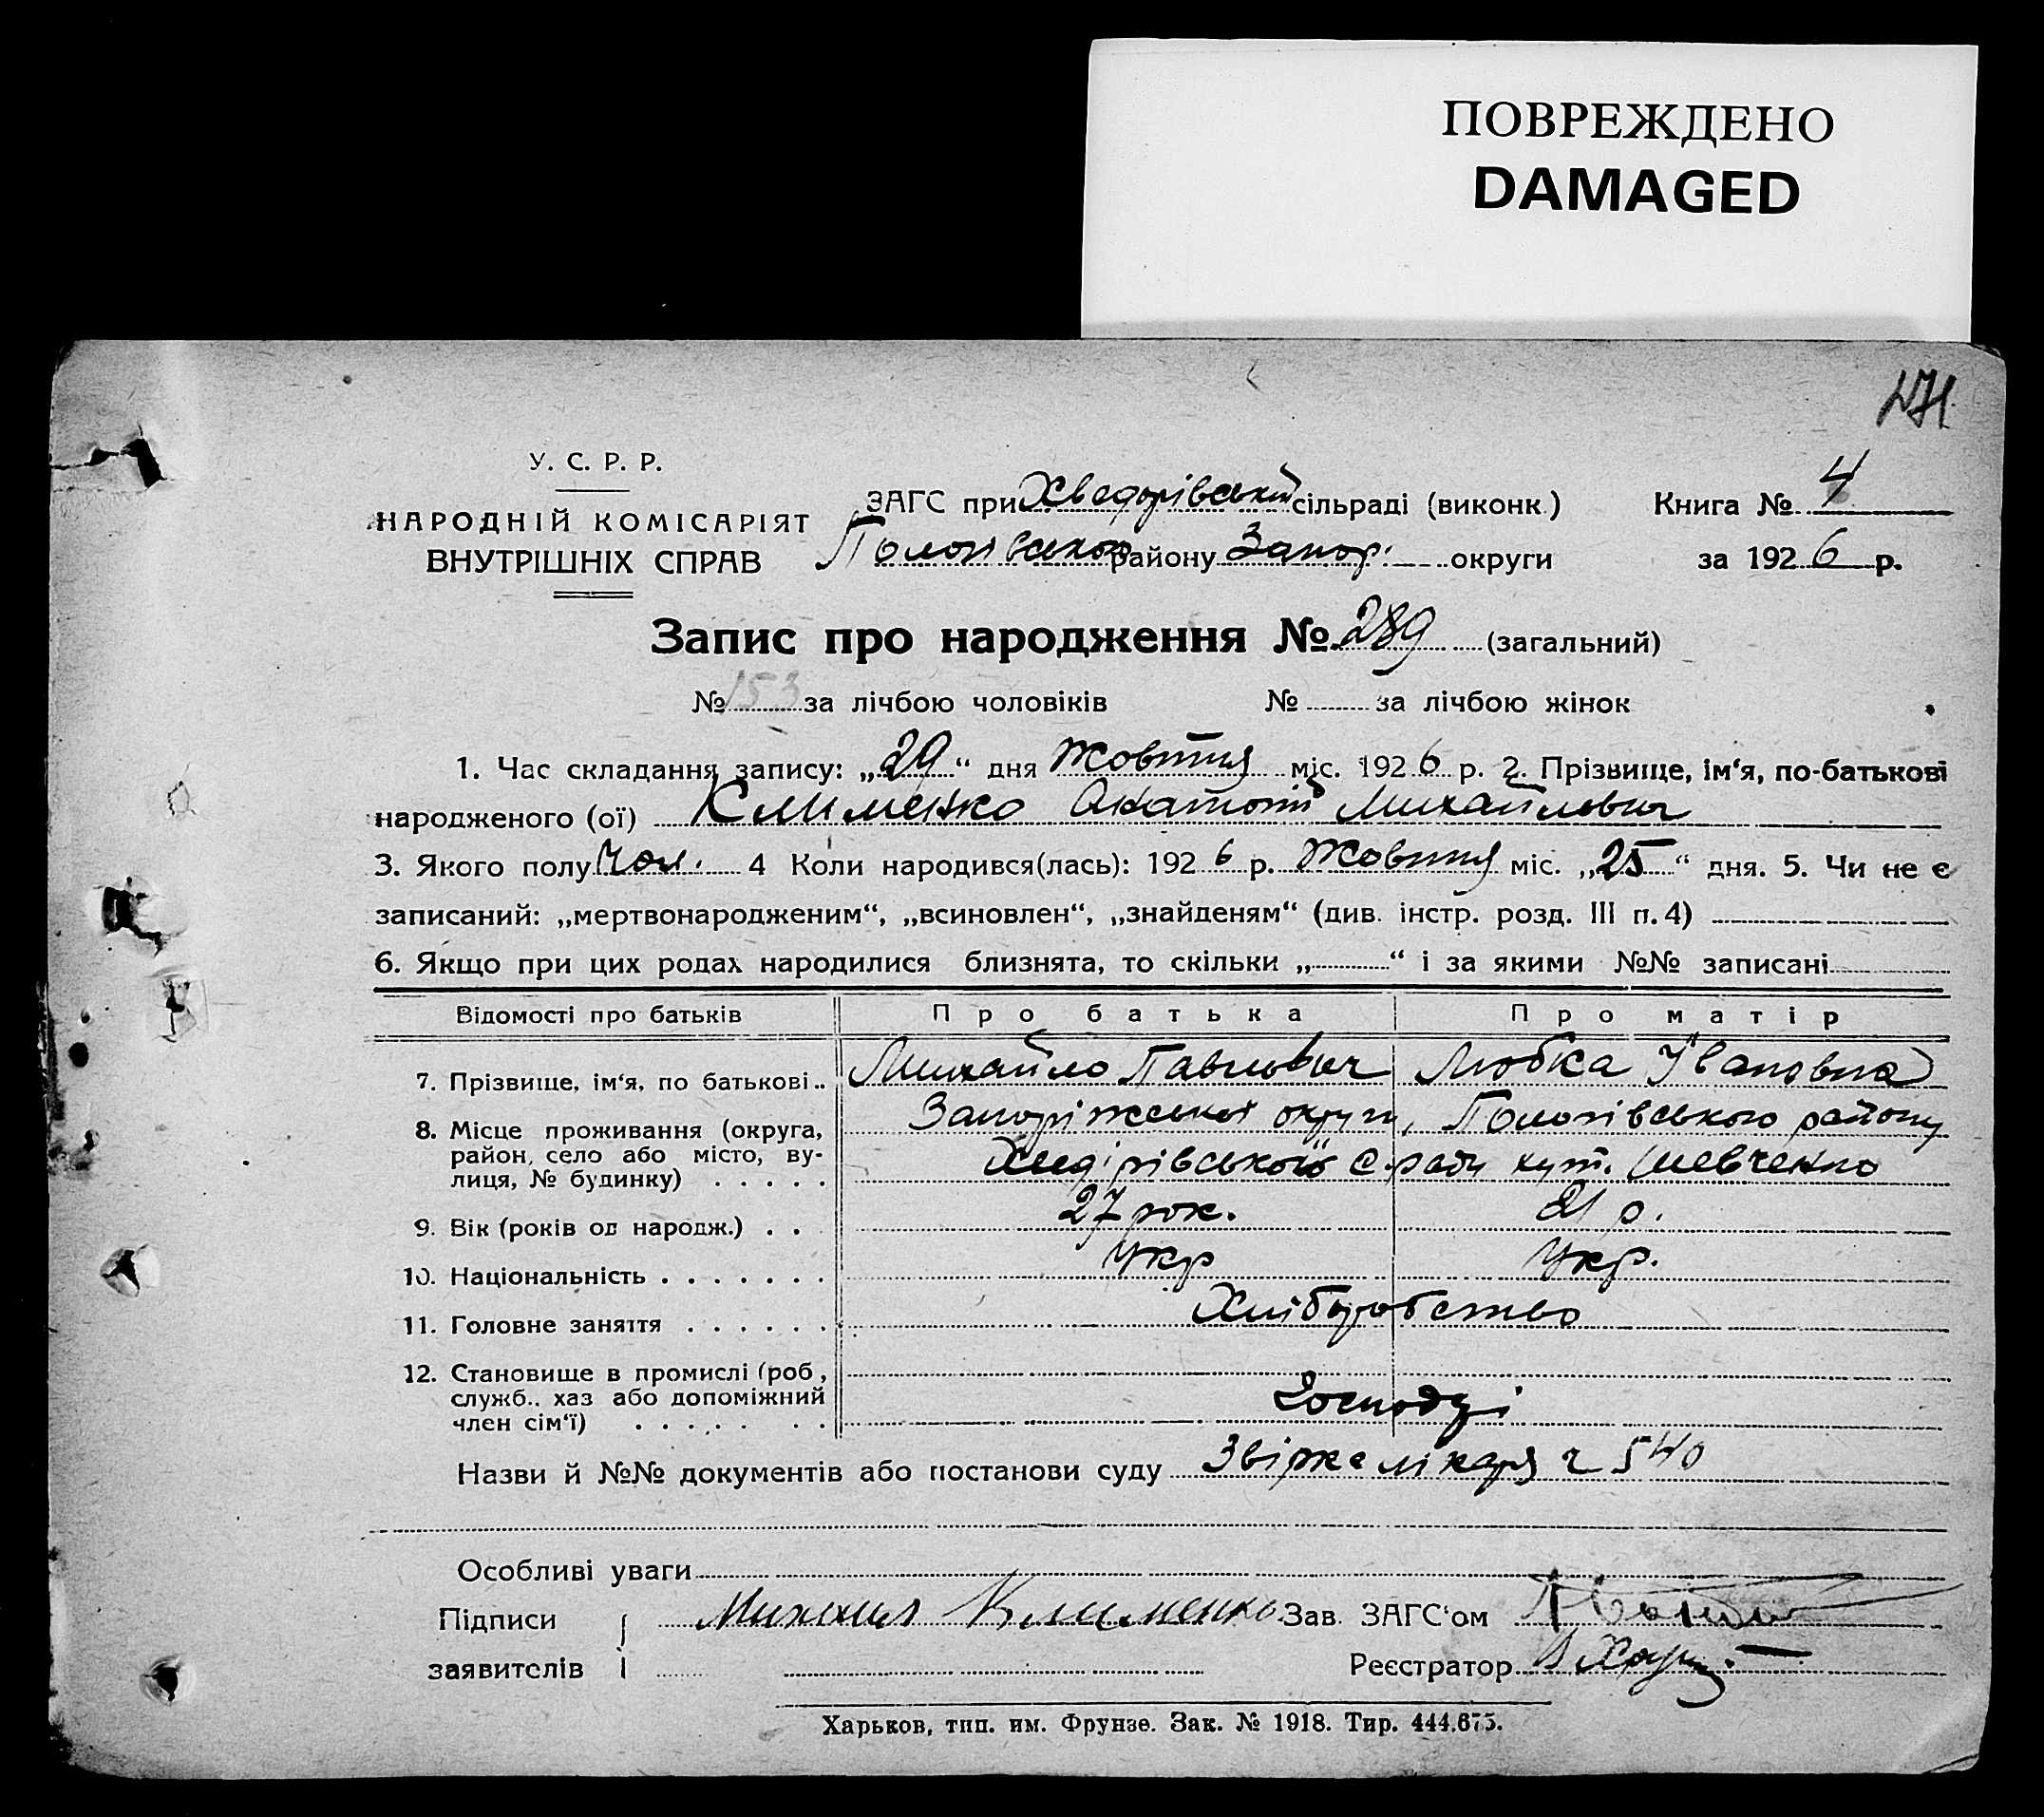 ПОВРЕЖДЕНО
DAMAGED
271
У. С. Р. Р.
НАРОДНІЙ КОМІСАРІЯТ
ВНУТРІШНІХ СПРАВ
ЗАГС при Хведорівській сільраді (виконк.) Книга № 4
Пологівського району Запор. округи за 1926 р.
Запис про народження № 289 (загальний)
№ 153 за лічбою чоловіків № за лічбою жінок
1. Час складання запису: „29“ дня Жовтня міс. 1926 р. 2. Прізвище, ім‘я, по-батькові
народженого (ої) Клименко Анатолій Михайлович
3. Якого полу чол. 4 Коли народився(лась): 1926 р. Жовтня міс. „25“ дня. 5. Чи не є
записаний: „мертвонародженим“, „всиновлен“, „знайденям“ (див. інстр. розд. III п. 4)
6. Якщо при цих родах народилися близнята, то скільки „ “ і за якими №№ записані
Відомості про батьків Про батька Про матір
7. Прізвище, ім‘я, по батькові.. Михайло Павлович Любка Івановна
8. Місце проживання (округа, Запоріжської округи, Пологівського району
район, село або місто, ву- С.ради хут. Шевченко
лиця, № будинку) . . . . .
9. Вік (років од народж.) . . 27 рок. 21 р.
10. Національність . . . . . . . Укр Укр.
11. Головне заняття . . . . . . Хліборобство
12. Становище в промислі (роб,
служб.. хаз або допоміжний Господзі
член сім‘ї) . . . . . . .
Назви й №№ документів або постанови суду лікаря ч 540
Особливі уваги
Підписи Михаил Клименко Зав. ЗАГС‘ом
заявителів Реєстратор
Харьков, тип. им. Фрунзе. Зак. № 1918. Тир. 444.675.